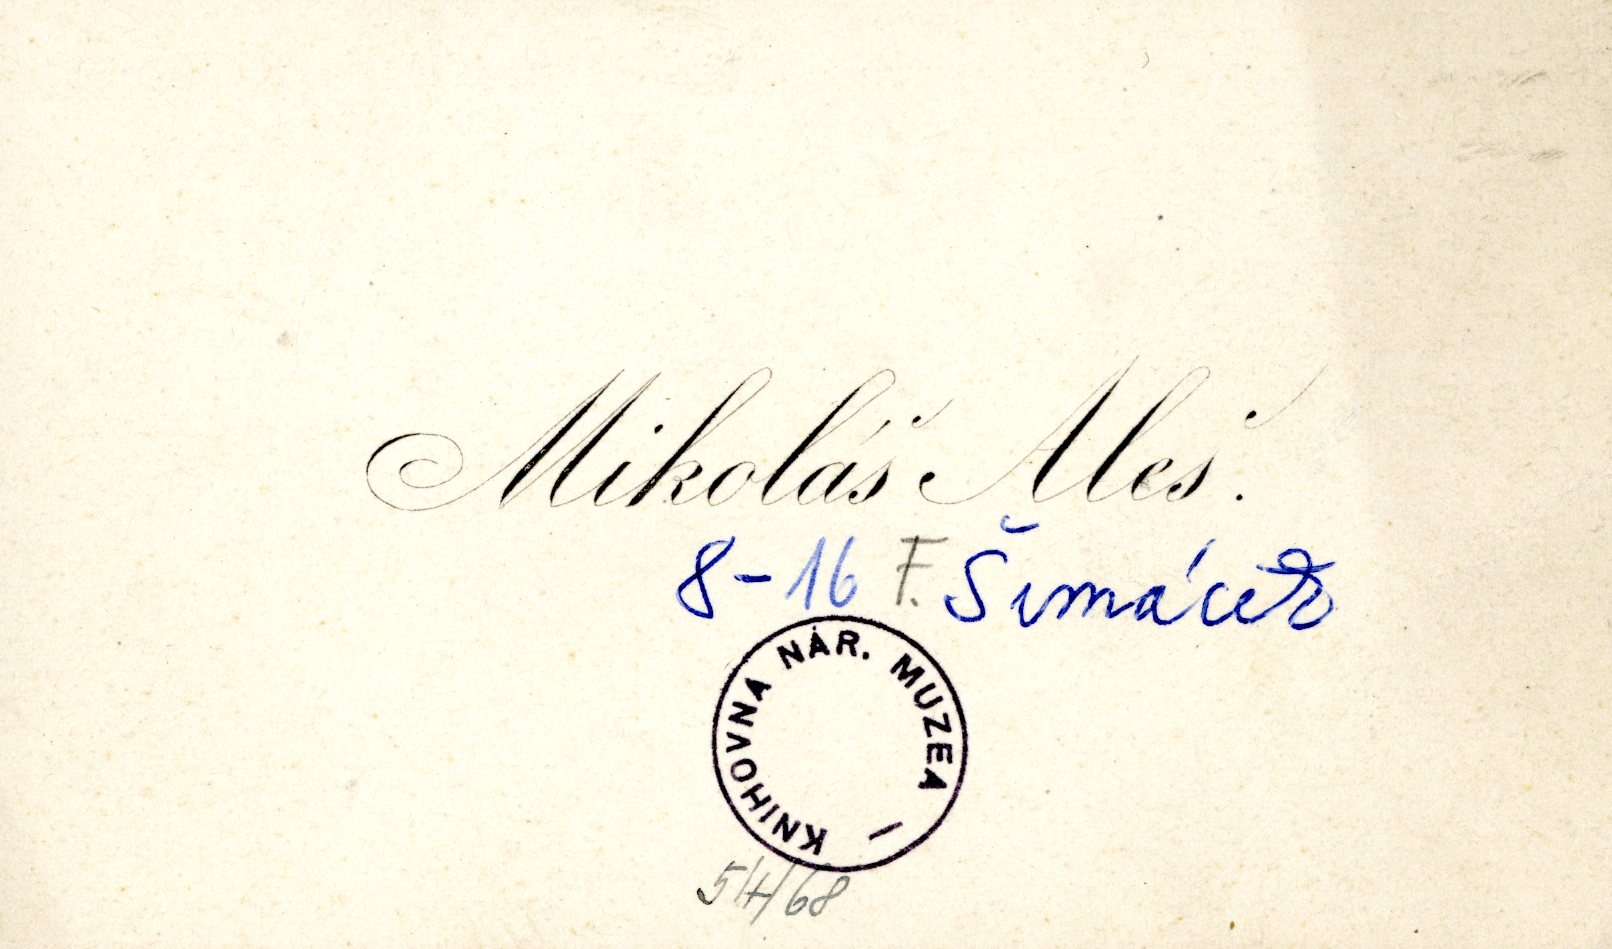 Mikoláš Aleš.
8-16 F. Šimáček
KNIHOVNA NÁR. MUZEA